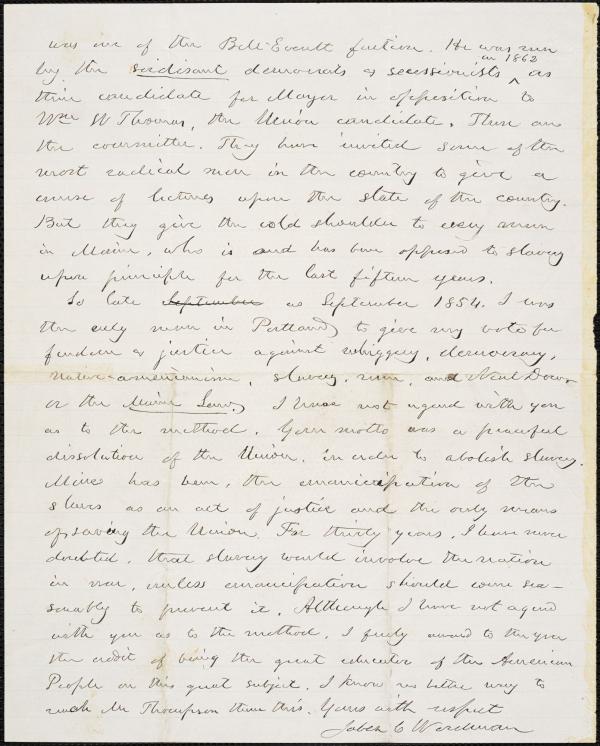 was one of the Bell-Everett faction. He was run
in 1862
by the soidisant democrats & secessionists ^ as
their candidate for Mayor in opposition to
Wm W Thomas, the Union candidate. These are
the committee. They have invited some of the
most radical men in the country to give a
course of lectures upon the state of the country.
But they give the cold shoulder to every man
in Maine, who is and has been opposed to slavery
upon principle for the last fifteen years.
So late September as September 1854. I was
the only man in Portland to give my vote for
freedom & justice against whiggery, democracy,
native-americanism, slavery, rum, and Neal Dow
or the Maine Law. I have not agreed with you
as to the method. Your motto was a peaceful
dissolution of the Union, in order to abolish slavery.
Mine has been, the emancipation of the
slaves as an act of justice and the only means
of saving the Union. For thirty years, I have never
doubted, that slavery would involve the nation
in war, unless emancipation should come sea-
sonably to prevent it. Although I have not agreed
with you as to the method, I freely award to you
the credit of being the great educator of the American
People on this great subject. I know no better way to
reach Mr Thompson than this. Yours with respect
Jabez C Woodman